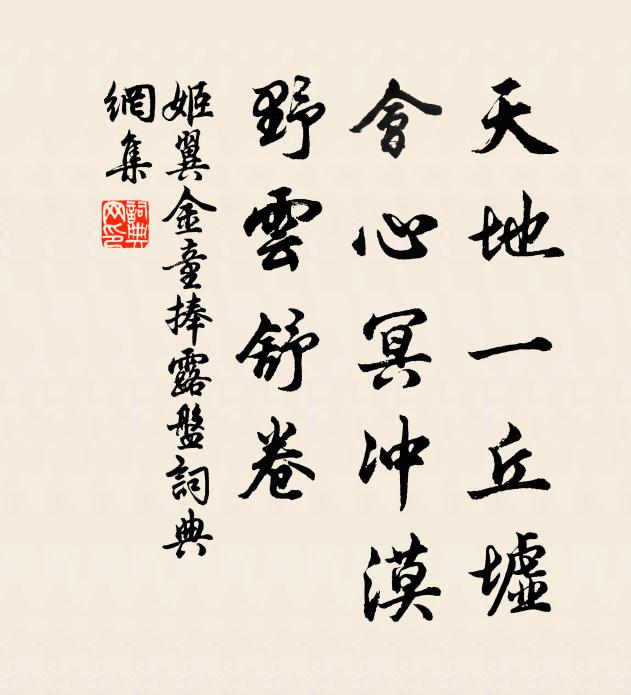 天地一丘墟
會心冥冲漠
野雲舒卷
姬翼金童捧露盤詞典
網集
詞典網印